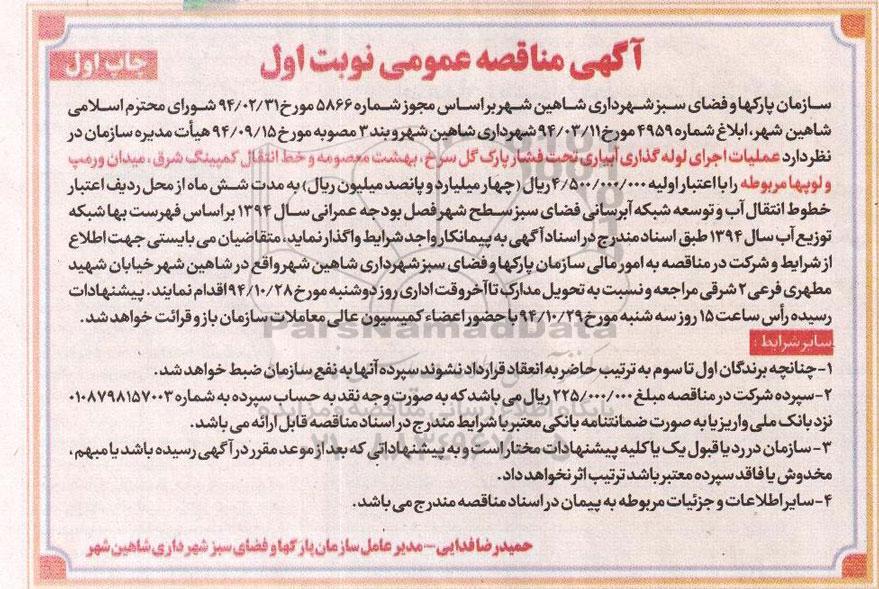 آگهی مناقصه عمومی نوبت اول
چاپ اول
سازمان پارکها و فضای سبز شهرداری شاهین شهر براساس مجوز شماره ۵۸۶۶ مورخ ۹۴/۰۲/۳۱ شورای محترم اسلامی
شاهین شهر، ابلاغ شماره ۴۹۵۹ مورخ ۹۴/۰۳/۱۱ شهرداری شاهین شهر و بند ۳ مصوبه مورخ ۹۴/۰۹/۱۵ هیأت مدیره سازمان در
نظر دارد عملیات اجرای لوله گذاری آبیاری تحت فشار پارک گل سرخ، بهشت معصومه و خط انتقال کمپینگ شرق، میدان ورمپ
و لوپها مربوطه را با اعتبار اولیه ۴/۵۰۰/۰۰۰/۰۰۰ ریال (چهار میلیارد و پانصد میلیون ریال) به مدت شش ماه از محل ردیف اعتبار
خطوط انتقال آب و توسعه شبکه آبرسانی فضای سبز سطح شهر فصل بودجه عمرانی سال ۱۳۹۴ براساس فهرست بها شبکه
توزیع آب سال ۱۳۹۴ طبق اسناد مندرج در اسناد آگهی به پیمانکار واجد شرایط واگذار نماید، متقاضیان می بایستی جهت اطلاع
از شرایط و شرکت در مناقصه به امور مالی سازمان پارکها و فضای سبز شهرداری شاهین شهر واقع در شاهین شهر خیابان شهید
مطهری فرعی ۲ شرقی مراجعه و نسبت به تحویل مدارک تا آخر وقت اداری روز دوشنبه مورخ ۹۴/۱۰/۲۸ اقدام نمایند. پیشنهادات
رسیده رأس ساعت ۱۵ روز سه شنبه مورخ ۹۴/۱۰/۲۹ با حضور اعضاء کمیسیون عالی معاملات سازمان باز و قرائت خواهد شد.
ParsNamadData
سایر شرایط :
۱-چنانچه برندگان اول تا سوم به ترتیب حاضر به انعقاد قرارداد نشوند سپرده آنها به نفع سازمان ضبط خواهد شد.
۲-سپرده شرکت در مناقصه مبلغ ۲۲۵/۰۰۰/۰۰۰ ریال می باشد که به صورت وجه نقد به حساب سپرده به شماره ۰۱۰۸۷۹۸۱۵۷۰۰۳
نزد بانک ملی واریز یا به صورت ضمانتنامه بانکی معتبر با شرایط مندرج در اسناد مناقصه قابل ارائه می باشد.
۳-سازمان در رد یا قبول یک یا کلیه پیشنهادات مختار است و به پیشنهاداتی که بعد از موعد مقرر در آگهی رسیده باشد یا مبهم،
مخدوش یا فاقد سپرده معتبر باشد ترتیب اثر نخواهد داد.
۴-سایر اطلاعات و جزئیات مربوطه به پیمان در اسناد مناقصه مندرج می باشد.
حمیدرضا فدایی-مدیر عامل سازمان پارکها و فضای سبز شهرداری شاهین شهر